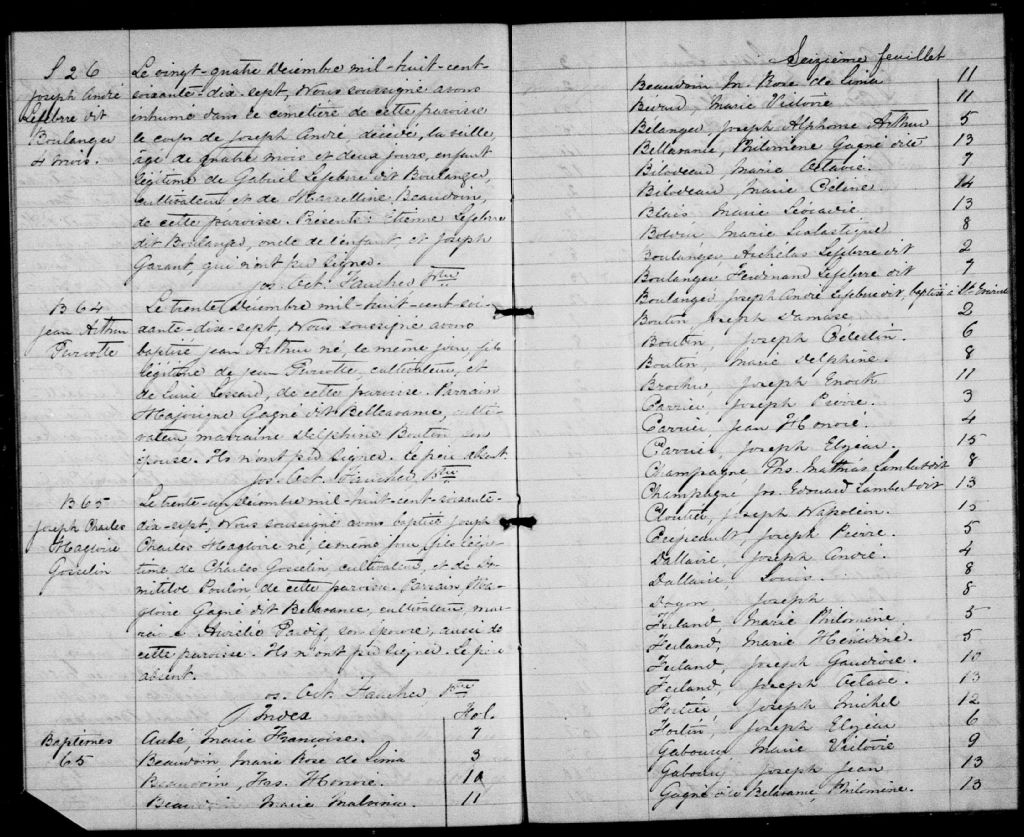 S 26
Joseph André
Lefebvre dit
Boulanger
4 mois.
Le vingt-quatre Décembre mil-huit-cent-
soixante-dix-sept, Nous soussigné avons
inhumé dans le cimetière de cette paroisse
le corps de Joseph André, décédé, la veille,
âgé de quatre mois et deux jours, enfant
légitime de Gabriel Lefebvre dit Boulanger,
cultivateur et de Marcelline Beaudoin,
de cette paroisse. Présents: Etienne Lefebvre
dit Boulanger, oncle de l'enfant, et Joseph
Garant, qui n'ont pu signer.
Jos. Oct. Faucher Ptre
B 64
Jean Arthur
Turcotte
Le trente Décembre mil-huit-cent-soi-
xante-dix-sept, Nous soussigné avons
baptisé Jean Arthur né, le même jour, fils
légitime de Jean Turcotte, cultivateur, et
de Lucie Lessard, de cette paroisse. Parrain
Gagné dit Bellavance, culti-
vateur marraine Delphine Boutin son
épouse. Ils n'ont pu signer. le père absent
Jos. Oct. Faucher Ptre
B 65
Joseph Charles
Magloire
Gosselin
Le trente-un Décembre mil-huit-cent-soixante-
dix-sept, Nous soussigné avons baptisé Joseph
Charles Magloire né, le même jour, fils légi-
time de Charles Gosselin cultivateur, et de Do-
mitilde Poulin, de cette paroisse. Parrain Ma-
gloire Gagné dit Belavance, cultivateur, mar-
raine Aurélie son épouse, aussi de
cette paroisse. Ils n'ont pu signer. Le père
absent.
Jos. Oct. Faucher Ptre
Index Fol.
Baptêmes
65
Aubé, Marie Françoise. 7
Beaudoin Marie Rose de Lima 3
Beaudoin, Frs. Honoré. 10
Beaudoin Marie Malvina. 11
Seizième feuillet
Beaudoin M. Rose de Lima 11
Marie Victoire 11
Bélanger, Joseph Alphonse Arthur 5
Bellavance, Philomène Gagné dite 13
Bilodeau, Marie Octavie. 7
Bilodeau, Marie Céline. 14
Blais Marie Léocadie. 13
Bolduc Marie Scolastique 8
Boulanger Archélas Lefebvre dit 2
Boulanger Ferdinand Lefebvre dit 7
Boulanger Joseph André Lefebvre dit, baptisé à
Boutin Joseph Damase. 2
Boutin, Joseph Célestin. 6
Boutin, Marie Delphine. 8
Brochu Joseph Enoch 11
Carrier, Joseph Pierre. 3
Carrier Jean Honoré. 4
Carrier, Joseph Elzéar. 15
Champagne Phs. Mathias Lambert dit 8
Champagne Jos. Edouard Lambert dit 13
Cloutier, Joseph Napoléon. 15
Crepeault, Joseph Pierre. 5
Dallaire, Joseph André. 4
Dallaire, Louis. 8
Doyon Joseph 8
Ferland, Marie Philomène. 5
Ferland, Marie Hénédine. 5
Ferland, Joseph Gaudiose. 10
Ferland, Joseph Octave. 13
Fortier, Joseph Michel 12
Fortin, Joseph Elzéar 6
Gaboury Marie Victoire 9
Gaboury Joseph Jean 13
Gagné dite Belavance, Philomène. 13